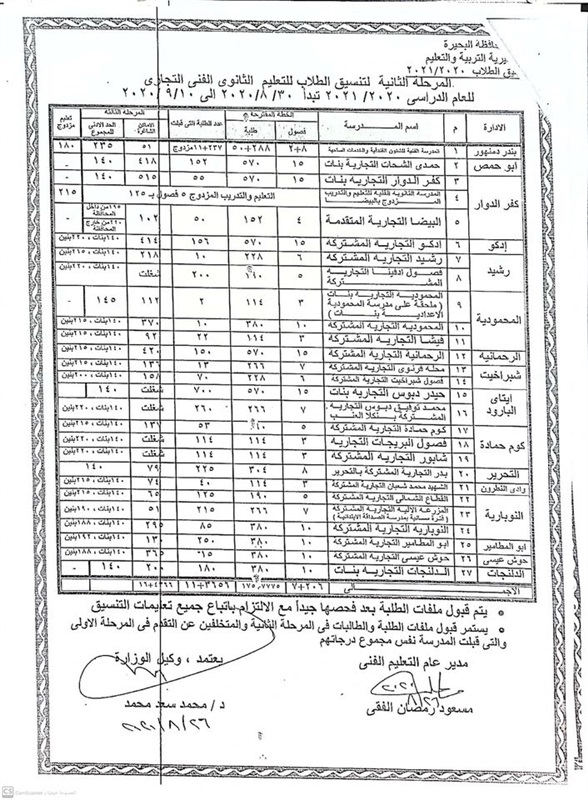 محافظة البحيرة
مديرية التربية والتعليم
تنسيق الطلاب ٢٠٢١/٢٠٢٠
المرحلة الثانية لتنسيق الطلاب للتعليم الثانوى الفنى التجارى
للعام الدراسى ٢٠٢٠/ ٢٠٢١ تبدأ ٢٠٢٠/٨/٣٠ الى ٢٠٢٠/٩/١٠
الادارة م اسم المدرسة الخطة المقترحة فصول طلبة عدد الطلبة التى قبلت المرحلة الثالثة الاماكن الشاغرة الحد الادنى للمجموع تعليم مزدوج
بندر دمنهور ١ ٢+٨ ٢٨٨+٥٠ ٢٣٧+١١مزدوج ٥١ ٢٣٥ ١٨٠
ابو حمص ٢ حمدى الشحات التجارية بنات ١٥ ٥٧٠ ١٥٢ ٤١٨ ١٤٠ -
كفر الدوار ٣ كفر الدوار التجارية بنات ١٥ ٥٧٠ ٥٥ ٥١٥ ١٤٠ -
٤ المدرسة الثانوية الفنية للتعليم والتدريب المزدوج بالبيضا التعليم والتدريب المزدوج ٥ فصول بـ ١٢٥ ٢١٥
٥ البيضا التجارية المتقدمة ٤ ١٥٢ ٥٠ ١٠٢ -
إدكو ٦ ادكو التجارية المشتركة ١٥ ٥٧٠ ١٥٦ ٤١٤ ١٤٠بنات،٢٢٠بنين
رشيد ٧ رشيد التجارية المشتركة ٦ ٢٢٨ ١٠ ٢١٨
٨ فصول ادفينا التجارية المشتركة ٥ ١٩٠ ٢٠٠ شغلت
المحمودية ٩ المحمودية التجارية بنات ( ملحقة على مدرسة المحمودية الاعدادية بنات ) ٣ ١١٤ ٢ ١١٢ ١٤٥ -
١٠ المحمودية التجارية المشتركة ١٠ ٣٨٠ ١٠ ٣٧٠
١١ فيشا التجارية المشتركة ٣ ١١٤ ٢٢ ٩٢
الرحمانية ١٢ الرحمانية التجارية المشتركة ١٥ ٥٧٠ ١٥٠ ٤٢٠
شبراخيت ١٣ محلة فرنوى التجارية المشتركة ٧ ٢٦٦ ١٣
١٤ فصول شبراخيت التجارية المشتركة ٦ ٢٢٨ ٧٠ ١٥٨
ايتاى البارود ١٥ حيدر دبوس التجارية بنات ١٥ ٥٧٠ ٧٠٠ شغلت ١٤٠ -
١٦ محمد توفيق دبوس التجارية المشتركة بنكلا العنب ٧ ٢٦٦ ٢٦٠ شغلت ١٤٠بنات،٢٢٠بنين
كوم حمادة ١٧ كوم حمادة التجارية المشتركة ٥ ٥٣ ١٣٧
١٨ فصول البريجات التجارية ٣ ١١٤ ١١٤ شغلت
١٩ شابور التجارية المشتركة ٣ ١١٤ ١١٤ شغلت
التحرير ٢٠ بدر التجارية المشتركة بالتحرير ٨ ٣٠٤ ٢٢٥ ٧٩ ١٤٠
وادى النطرون ٢١ الشهيد محمد شعبان التجارية المشتركة ٣ ١١٤ ٤٠ ٧٤
النوبارية ٢٢ القطاع الشمالى التجارية المشتركة ٥ ١٩٠ ١٢٥ ٦٥
٢٣ ٧ ٢٦٦ ٢١٥ ٥١
٢٤ النوبارية التجارية المشتركة ١٠ ٣٨٠ ٨٥ ٢٩٥
ابو المطامير ٢٥ ابو المطامير التجارية المشتركة ١٠ ٣٨٠ ٢٥٠ ١٣٠
حوش عيسى ٢٦ حوش عيسى التجارية المشتركة ١٠ ٣٨٠ ١٥ ٣٦٥
الدلنجات ٢٧ الدلنجات التجارية بنات ١٠ ٣٨٠ ٢٠٠ ١٨٠ ١٤٠ -
الاجمالى ٢٠٦+٧
• يتم قبول ملفات الطلبة بعد فحصها جيداً مع الالتزام باتباع جميع تعليمات التنسيق
• يستمر قبول ملفات الطلبة والطالبات فى المرحلة الثانية والمتخلفين عن التقدم فى المرحلة الاولى
والتى قبلت المدرسة نفس مجموع درجاتهم
مدير عام التعليم الفنى
يعتمد ، وكيل الوزارة
مسعود رمضان الفقى
د / محمد سعد محمد
٢٠٢٠/٨/٢٦
CS CamScanner